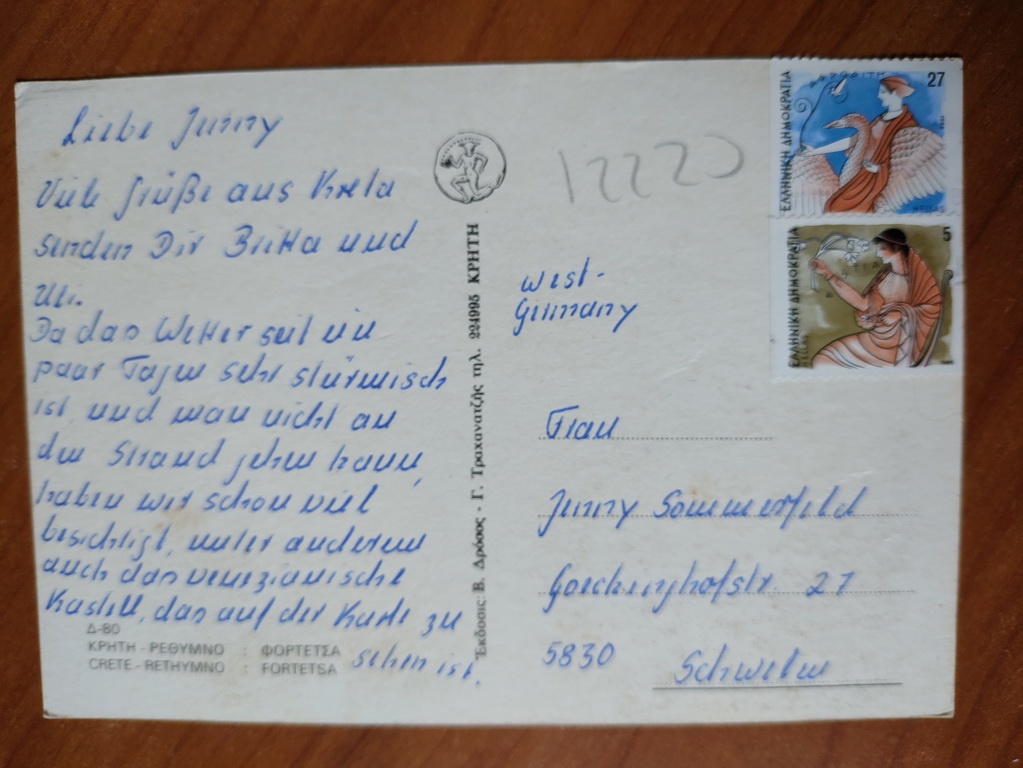 Liebe Jenny
Viele Grüße aus Kreta
senden Dir Britta und
Uli.
Da das Wetter seit ein
paar Tagen sehr stürmisch
ist und man nicht an
den Strand gehen kann,
haben wir schon viel
besichtigt, unter anderem
auch das venezianische
Kastell, das auf der Karte zu
sehen ist.
Δ-80
ΚΡΗΤΗ - ΡΕΘΥΜΝΟ : ΦΟΡΤΕΤΣΑ
CRETE - RETHYMNO : FORTETSA
Ἐκδοσις: Β. Δρόσος - Γ. Τραχανατζής τηλ. 224995 ΚΡΗΤΗ
12220
ΕΛΛΗΝΙΚΗ ΔΗΜΟΚΡΑΤΙΑ
ΑΦΡΟΔΙΤΗ
27
ΕΛΛΗΝΙΚΗ ΔΗΜΟΚΡΑΤΙΑ
5
HELLAS
West-
Germany
Frau
Jenny Sommerfeld
27
5830
Schwelm